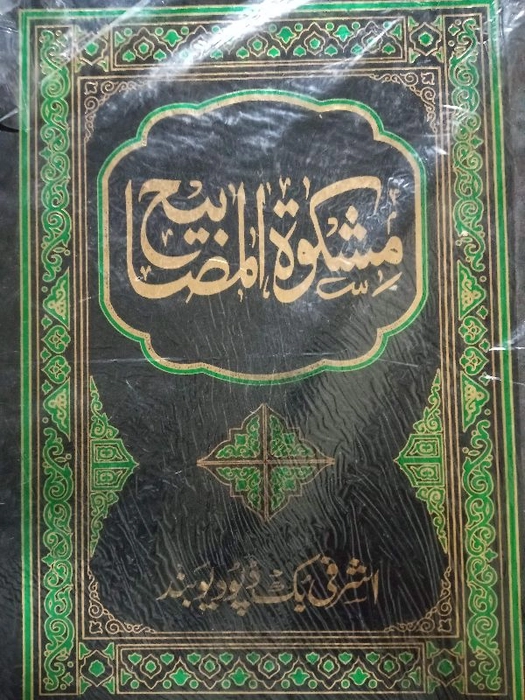 مشكوة المصابيح
اشرفی بک ڈپو دیوبند